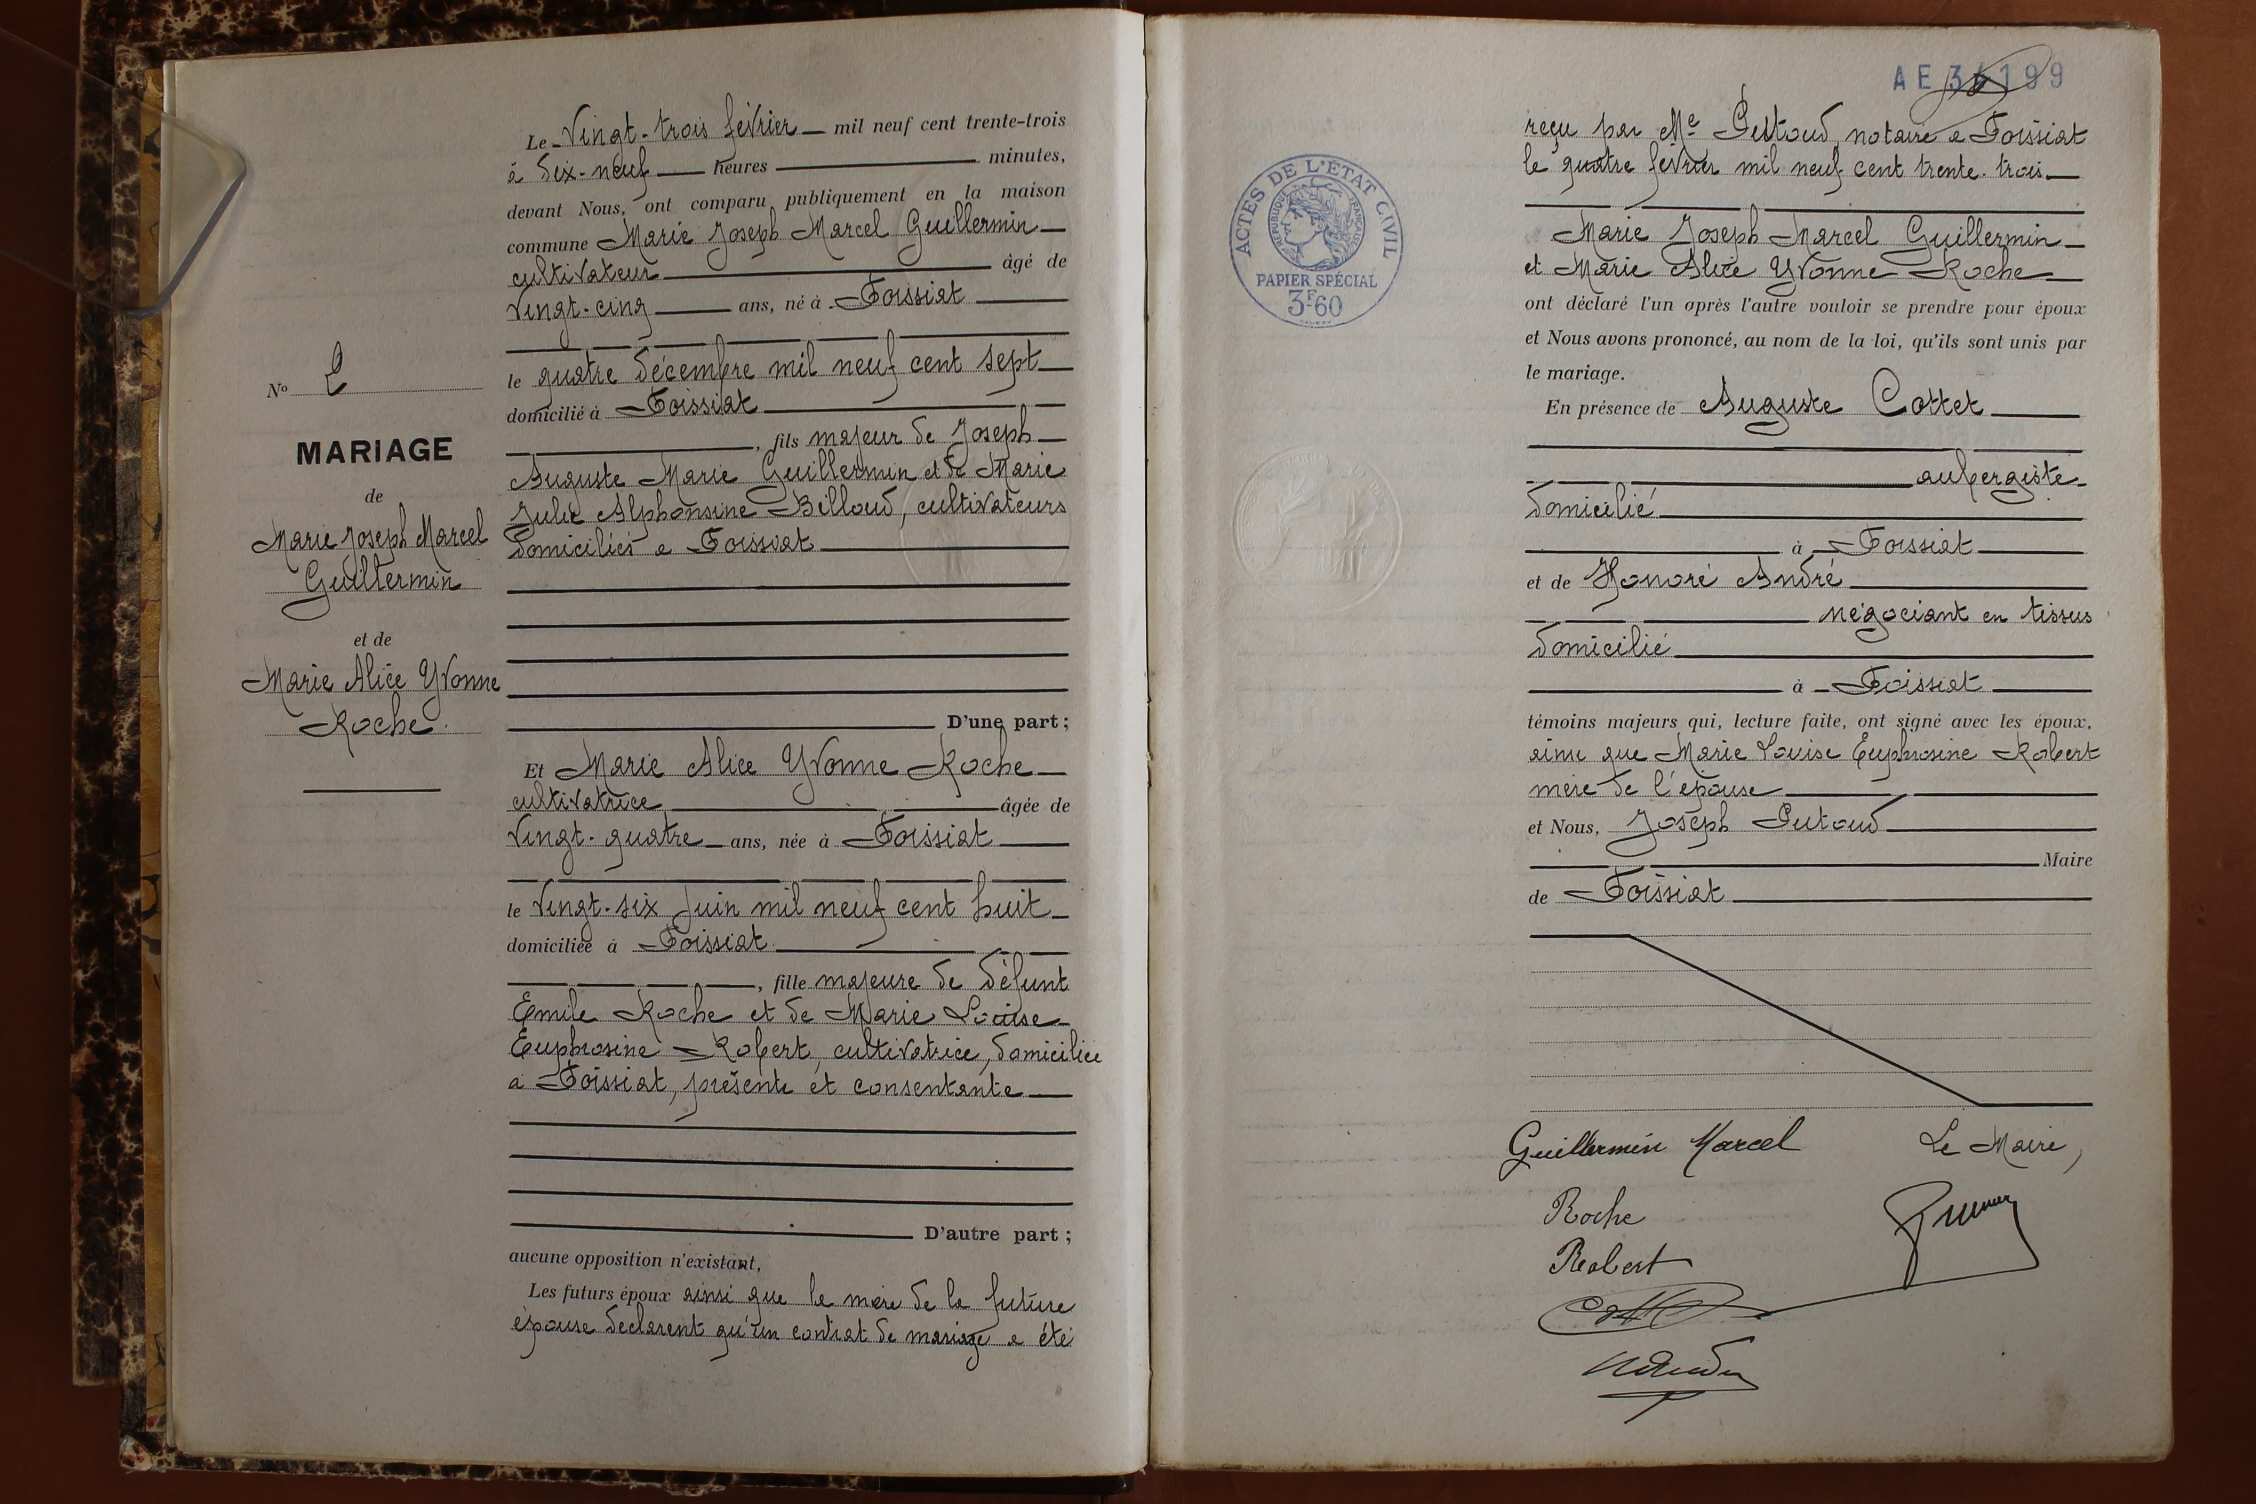 Le Vingt-trois février mil neuf cent trente-trois
à dix-neuf heures minutes,
devant Nous, ont comparu publiquement en la maison
commune Marie Joseph Marcel Guillermin
cultivateur âgé de
vingt-cinq ans, né à Foissiat
le quatre décembre mil neuf cent sept
domicilié à Foissiat
, fils majeur de Joseph
Auguste Marie Guillermin et de Marie
Julie Alphonsine Billoud, cultivateurs
domiciliés a Foissiat
D'une part ;
Et Marie Alice Yvonne Roche
cultivatrice âgée de
Vingt-quatre ans, née à Foissiat
le Vingt-six Juin mil neuf cent huit
domiciliée à Foissiat
, fille majeure de défunt
Emile Roche et de Marie Louise
Euphrosine Robert, cultivatrice, domiciliée
a Foissiat, présente et consentante
D'autre part ;
aucune opposition n'existant,
Les futurs époux ainsi que la mère de la future
épouse declarent qu'un contrat de mariage a été
No
MARIAGE
de
Marie Joseph Marcel
Guillermin
et de
Marie Alice Yvonne
Roche.
ACTES DE L'ETAT CIVIL
REPUBLIQUE FRANÇAISE
PAPIER SPÉCIAL
3F60
AE 199
reçu par Me notaire a Foissiat
le quatre février mil neuf cent trente-trois
Marie Joseph Marcel Guillermin
et Marie Alice Yvonne Roche
ont déclaré l'un après l'autre vouloir se prendre pour époux
et Nous avons prononcé, au nom de la loi, qu'ils sont unis par
le mariage.
En présence de Auguste Cottet
aubergiste
domicilié
à Foissiat
et de Honoré André
négociant en tissus
domicilié
à Foissiat
témoins majeurs qui, lecture faite, ont signé avec les époux,
ainsi que Marie Louise Euphrosine Robert
mère de l'épouse
et Nous, Joseph
Maire
de Foissiat
Guillermin Marcel
Le Maire,
Roche
Robert